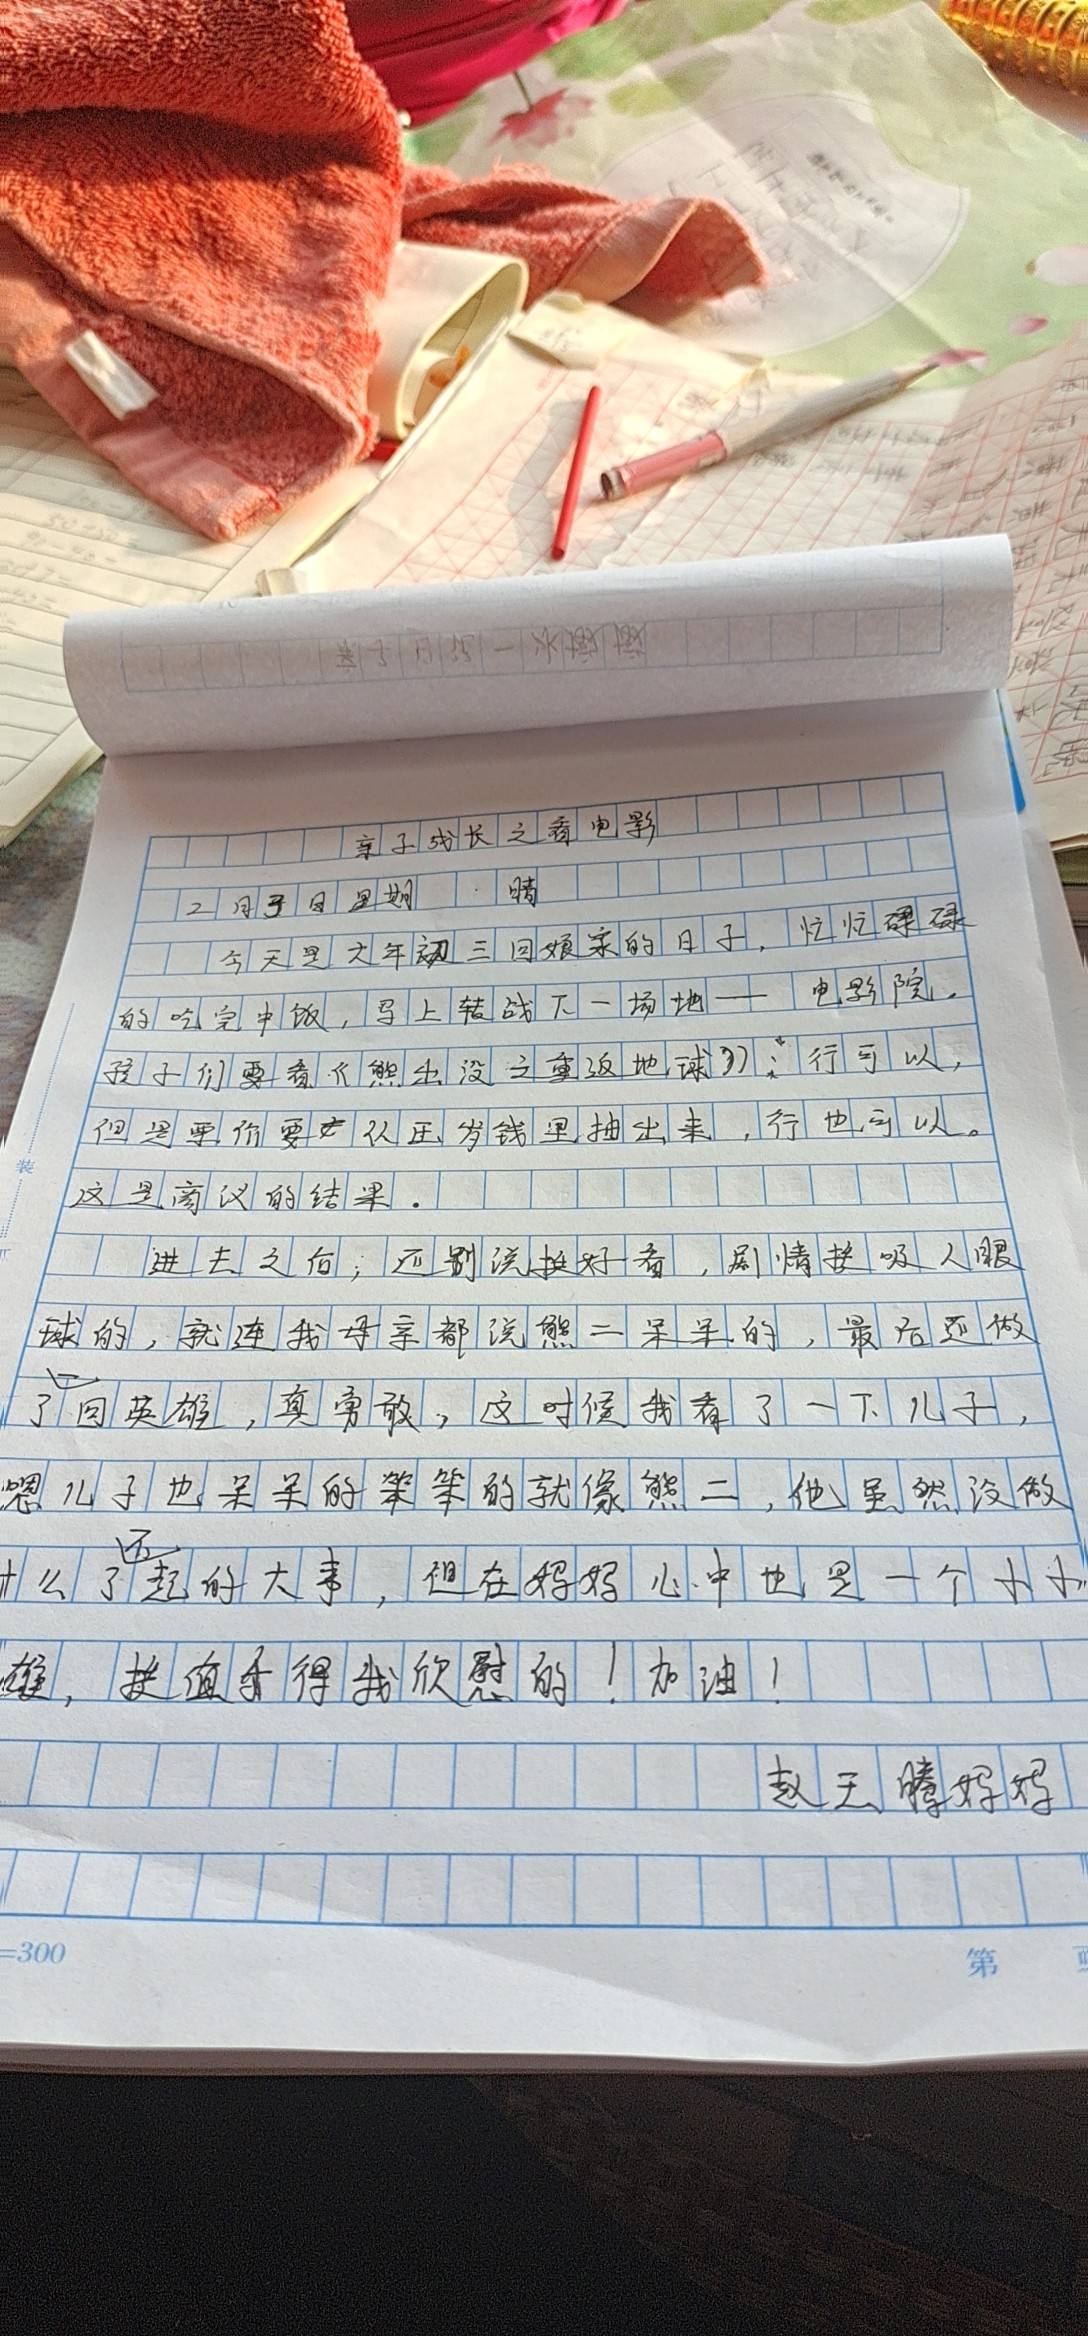 亲子成长之看电影
2月3日星期 晴
今天是大年初三回娘家的日子，忙忙碌碌
的吃完中饭，马上转战下一场地——电影院。
孩子们要看《熊出没之重返地球》；行可以，
但是要你要从压岁钱里抽出来，行也可以。
这是商议的结果.
进去之后；还别说挺好看，剧情挺吸人眼
球的，就连我母亲都说熊二呆呆的，最后还做
了回英雄，真勇敢，这时候我看了一下儿子，
嗯儿子也呆呆的笨笨的就像熊二，他虽然没做
什么了起的大事，但在妈妈心中也是一个小小
雄，挺值得我欣慰的！加油！
赵天腾妈妈
装
=300
第